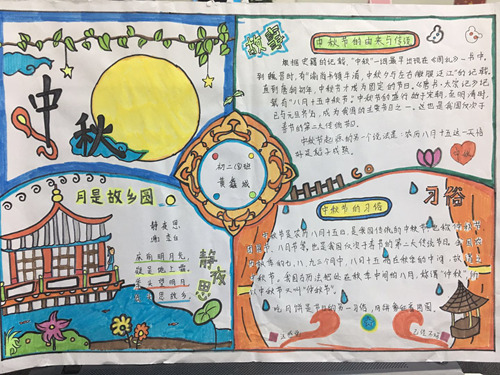 中秋
故事
中秋节的由来与传说
根据史籍的记载，"中秋"一词最早出现在《周礼》一书中。
到魏晋时，有"谕尚书镇牛渚，中秋夕与左右微服泛江"的记载。
直到唐朝初年，中秋节才成为固定的节日。《唐书·太宗记》记
载有"八月十五中秋节"。中秋节的盛行始于宋朝，至明清时，
已与元旦齐名，成为我国的主要节日之一。这也是我国仅次于
春节的第二大传统节日。
中秋节起源的另一个说法是：农历八月十五这一天恰
好是稻子成熟
初二
月是故乡圆
静夜思
唐 李白
床前明月光
疑是地上霜
举头望明月
低头思故乡
静夜思
习俗
中秋节的习俗
中秋节是农历八月十五日，是我国传统的中秋节，也称仲秋节
八月节等，也是我国仅次于春节的第二大传统节日
八、九三个月中，八月十五
中秋节。我国古历法把处在秋季中间的八月，称谓"仲秋"，
以中秋节又叫"仲秋节"。
吃月饼是节日的另一习俗，月饼象征着团圆。